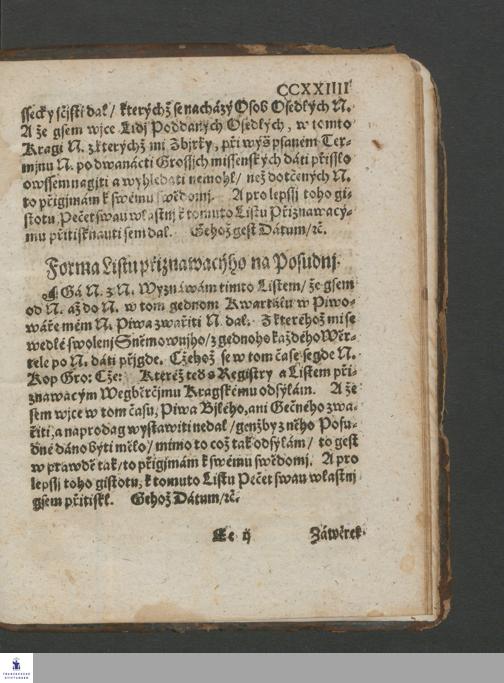 CCXXIIII
ssecky sčjsti dal / kterýchž se nacházý Osob Osedlých N.
A že gsem wjce Lidj Poddaných Osedlých, w tomto
Kragi N. z kterýchž mi Zbjrky, při wyš psaném Ter-
mjnu N. po dwanácti Grossjch missenských dáti přisslo
owssem nagjti a wyhledati nemohl / než dotčených N.
to přigjmám k swému swědomj. A pro lepssj toho gi-
stotu Pečet swau wlastnj k tomuto Listu Přiznawacý-
mu přitisknauti sem dal. Gehož gest Dátum / ꝛč.
Forma Listu přiznawacýho na Posudnj.
GÁ N. z N. Wyznáwám timto Listem / že gsem
od N. až do N. w tom gednom Kwartálu w Piwo-
wáře mém N. Piwa zwařiti N. dal. Z kterého ž mi se
wedlé swolenj Sněmownjho / z gednoho každého Wěr-
tele po N. dáti přigde. Cžehož se w tom čase segde N.
Kop Gro: Cže: Kteréž teď s Registry a Listem při-
znawacým Wegběrčjmu Kragskému odsýlám. A že
sem wjce w tom času, Piwa Bjlého, ani Gečného zwa-
řiti, a na prodag wystawiti nedal / genžby z něho Posu-
dné dáno býti mělo / mimo to což tak odsýlám / to gest
w prawdě tak / to přigjmám k swému swědomj. A pro
lepssj toho gistotu, k tomuto Listu Pečet swau wlastnj
gsem přitiskl. Gehož Dátum / ꝛč.
Ee ij Záwěrek
FRANCKESCHE
STIFTUNGEN